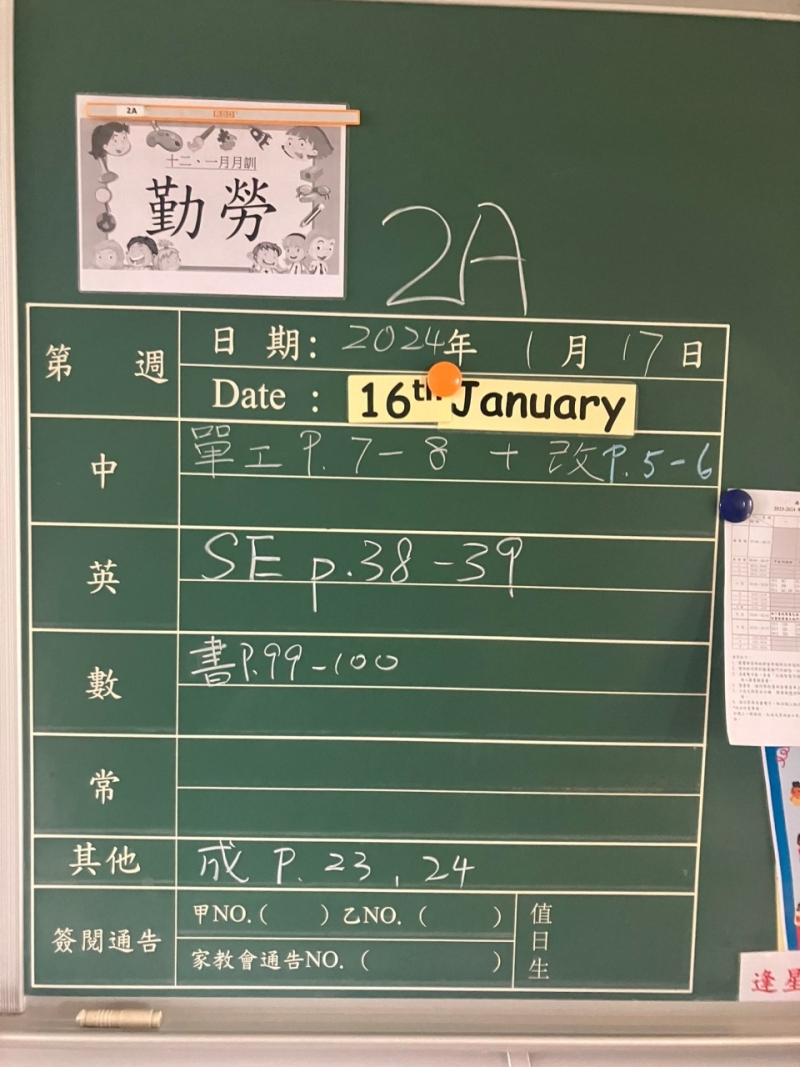 2A
十二、一月月訓
勤勞
2A
第 週
日 期: 2024年 1月 17日
Date : 16th January
中
單工 P. 7-8 + 改 P. 5-6
英
SE p.38-39
數
書P.99-100
常
其他
成 P. 23, 24
簽閱通告
甲NO.( ) 乙NO. ( )
家教會通告NO. ( )
值日生
逢星